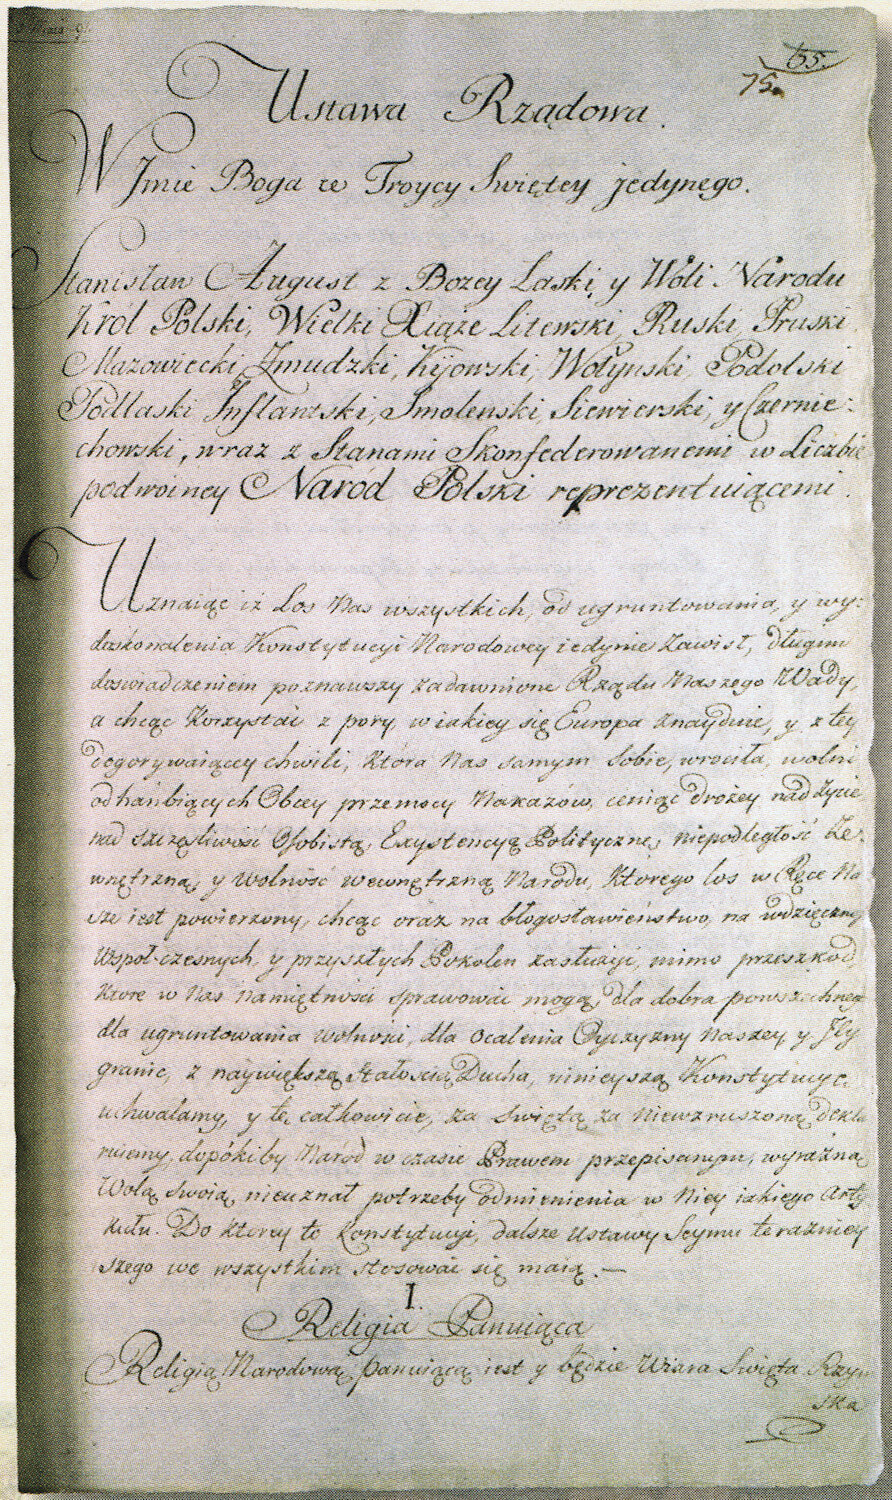 55.
75.
Ustawa Rządowa.
W Imie Boga w Troycy Swiętey jedynego.
Stanisław August z Bozey Łaski y Woli Narodu
Król Polski, Wielki Xiąże Litewski, Ruski, Pruski,
Mazowiecki, Żmudzki, Kijowski, Wołynski, Podolski
Podlaski Inflantski, Smolenski, Siewierski, y Czernie-
chowski, wraz z Stanami Skonfederowanemi w Liczbie
podwoiney Naród Polski reprezentuiącemi.
Uznaiąc iż Los Nas wszystkich, od ugruntowania, y wy-
doskonalenia Konstytucyi Narodowey iedynie zawisł, długim
doswiadczeniem poznawszy zadawnione Rządu Naszego Wady,
a chcąc korzystać z pory, w iakiey się Europa znayduie, y z tey
dogorywaiącey chwili, która Nas samym sobie, wrociła, wolni
od hańbiących Obcey przemocy Nakazów, ceniąc drożey nad życie
nad szczęsliwość Osobistą, Exystencyą Polityczną, niepodległość ze-
wnętrzną, y wolność wewnętrzną Narodu, którego los w Ręce Na
sze iest powierzony, chcąc oraz na błogosławieństwo, na wdzięczność
Współ-czesnych, y przyszłych Pokolen zasłużyi, mimo przeszkod,
które w Nas Namiętności sprawować mogą, dla dobra powszechnego
dla ugruntowania wolności, dla ocalenia Oyczyzny Naszey y Jey
granic, z naywiększą stałością Ducha, ninieyszą Konstytucyę
uchwalamy, y tę całkowicie, za swiętą, za niewzruszoną dekla
ruiemy, dopókiby Naród w czasie Prawem przepisanym, wyrażną
Wolą swoią, nieuznał potrzeby odmienienia w Niey iakiego Arty
kułu. Do którey to Konstytucyi, dalsze Ustawy Seymu teraźniey
szego we wszystkim stosować się maią.—
I.
Religia Panuiąca
Religią Narodową panuiącą iest y będzie Wiara Swięta Rzym
ska